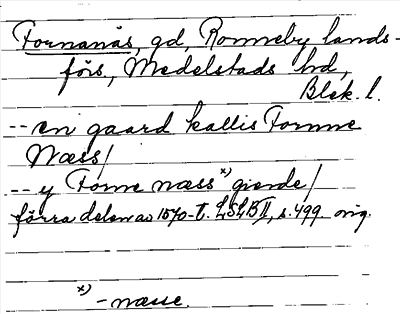 Fornanäs, gd, Ronneby lands-
förs., Medelstads hd,
Blek. l.
-- en gaard kallis Fornne
Næss/
-- y Forne næss x) giærde/
förra delen av 1570-t. LSLB II, s. 499. orig.
x) -næsse.